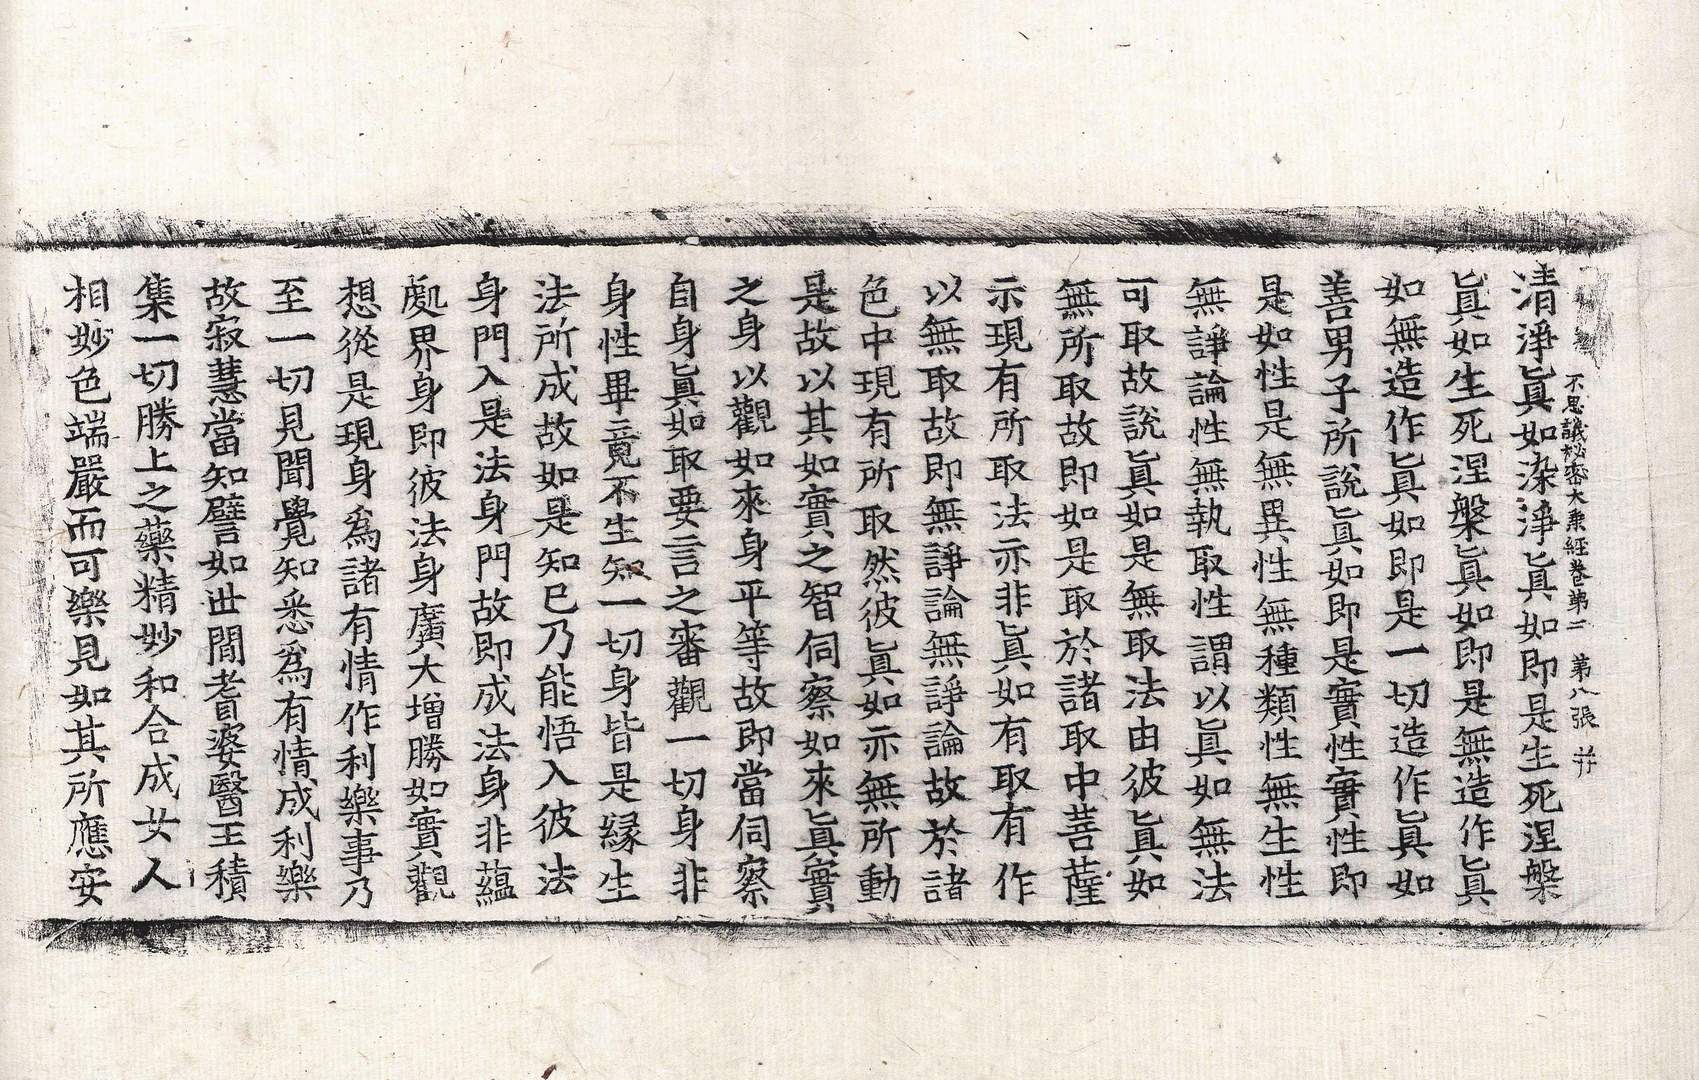 不思議秘密大乘經卷第二 第八張 并
清淨眞如染淨眞如即是生死涅槃
眞如生死涅槃眞如即是無造作眞
如無造作眞如即是一切造作眞如
善男子所說眞如即是實性實性即
是如性是無異性無種類性無生性
無諍論性無執取性謂以眞如無法
可取故說眞如是無取法由彼眞如
無所取故即如是取於諸取中菩薩
示現有所取法亦非眞如有取有作
以無取故即無諍論無諍論故於諸
色中現有所取然彼眞如亦無所動
是故以其如實之智伺察如來眞實
之身以觀如來身平等故即當伺察
自身眞如取要言之審觀一切身非
身性畢竟不生知一切身皆是緣生
法所成故如是知已乃能悟入彼法
身門入是法身門故即成法身非蘊
處界身即彼法身廣大增勝如實觀
想從是現身爲諸有情作利樂事乃
至一切見聞覺知悉爲有情成利樂
故寂慧當知譬如世間耆婆醫王積
集一切勝上之藥精妙和合成女人
相妙色端嚴而可樂見如其所應安